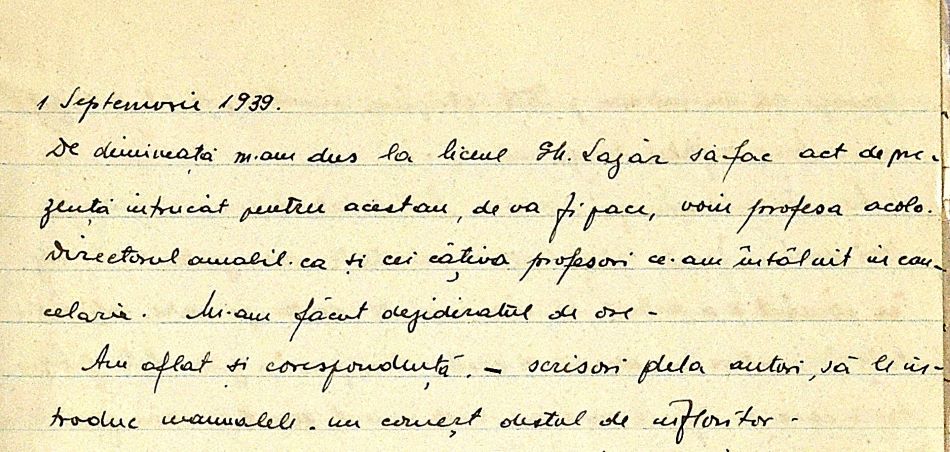 1 Septemvrie 1939.
De dimineață m-am dus la liceul Gh. Lazăr să-fac act de pre-
zență intrucât pentru acest an, de va fi pace, voiu profesa acolo.
Directorul amabil. ca și cei câțiva profesori ce-am întâlnit in can-
celarie. Mi-am făcut dezideratul de ore -
Am aflat și corespondență. - scrisori dela autori, să le in-
troduc manualele. un comerț destul de infloritor -